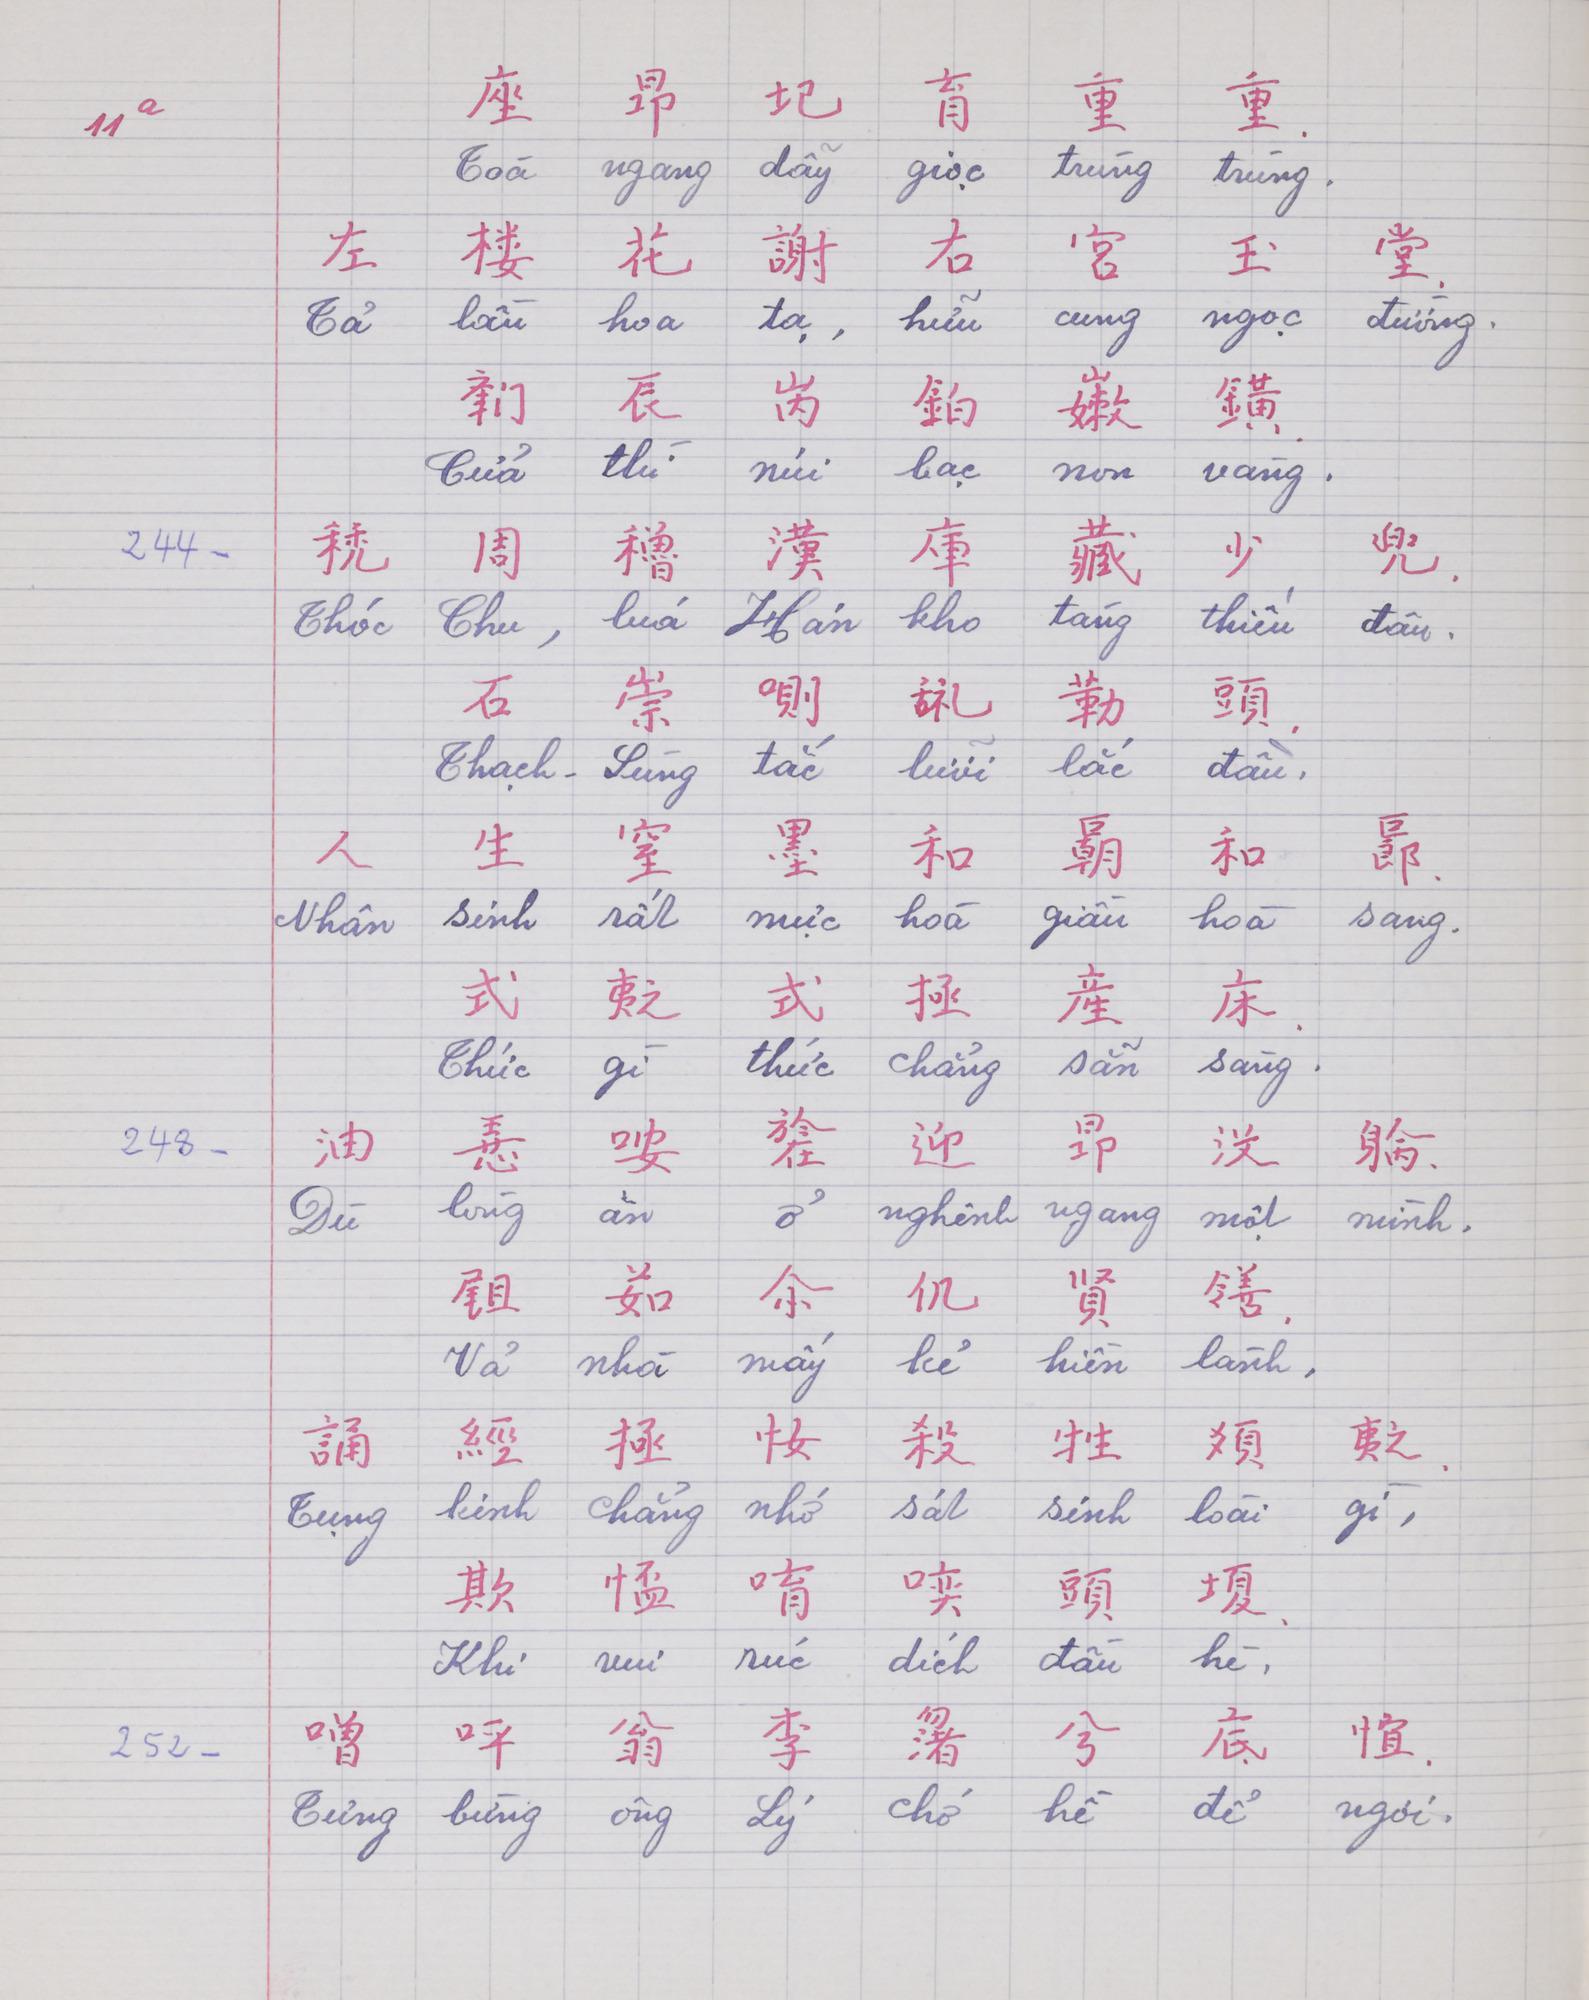 11a
座 昂 圮 育 重 重.
Toà ngang dẫy giọc trùng trùng.
左 楼 花 謝 右 宮 玉 堂.
Tả lầu hoa tạ, hữu cung ngọc đường.
辰 鉑 鐄.
Của thì núi bạc non vàng.
244- 周 穭 漢 庫 藏 少 兜.
Thóc Chu, luá Hán kho tàng thiếu đâu.
石 崇 唎 勒 頭.
Thạch-Sùng tắc lưỡi lắc đầu.
人 生 窒 墨 和 和.
Nhân sinh rất mực hoà giầu hoà sang.
式 式 拯 產 床.
Thức gì thức chẳng sẵn sàng.
248- 油 迎 昂 没 躺.
Dù lòng ăn ở nghênh ngang một mình.
茹 余 仉 賢.
Vả nhà mấy kẻ hiền lành,
誦 經 拯 殺 牲.
Tụng kinh chẳng nhớ sát sinh loài gì,
欺 唷 頭.
Khi vui rúc dích đầu hè,
252- 噌 呯 翁 李 兮 底.
Tưng bừng ông Lý chớ hề để ngơi.